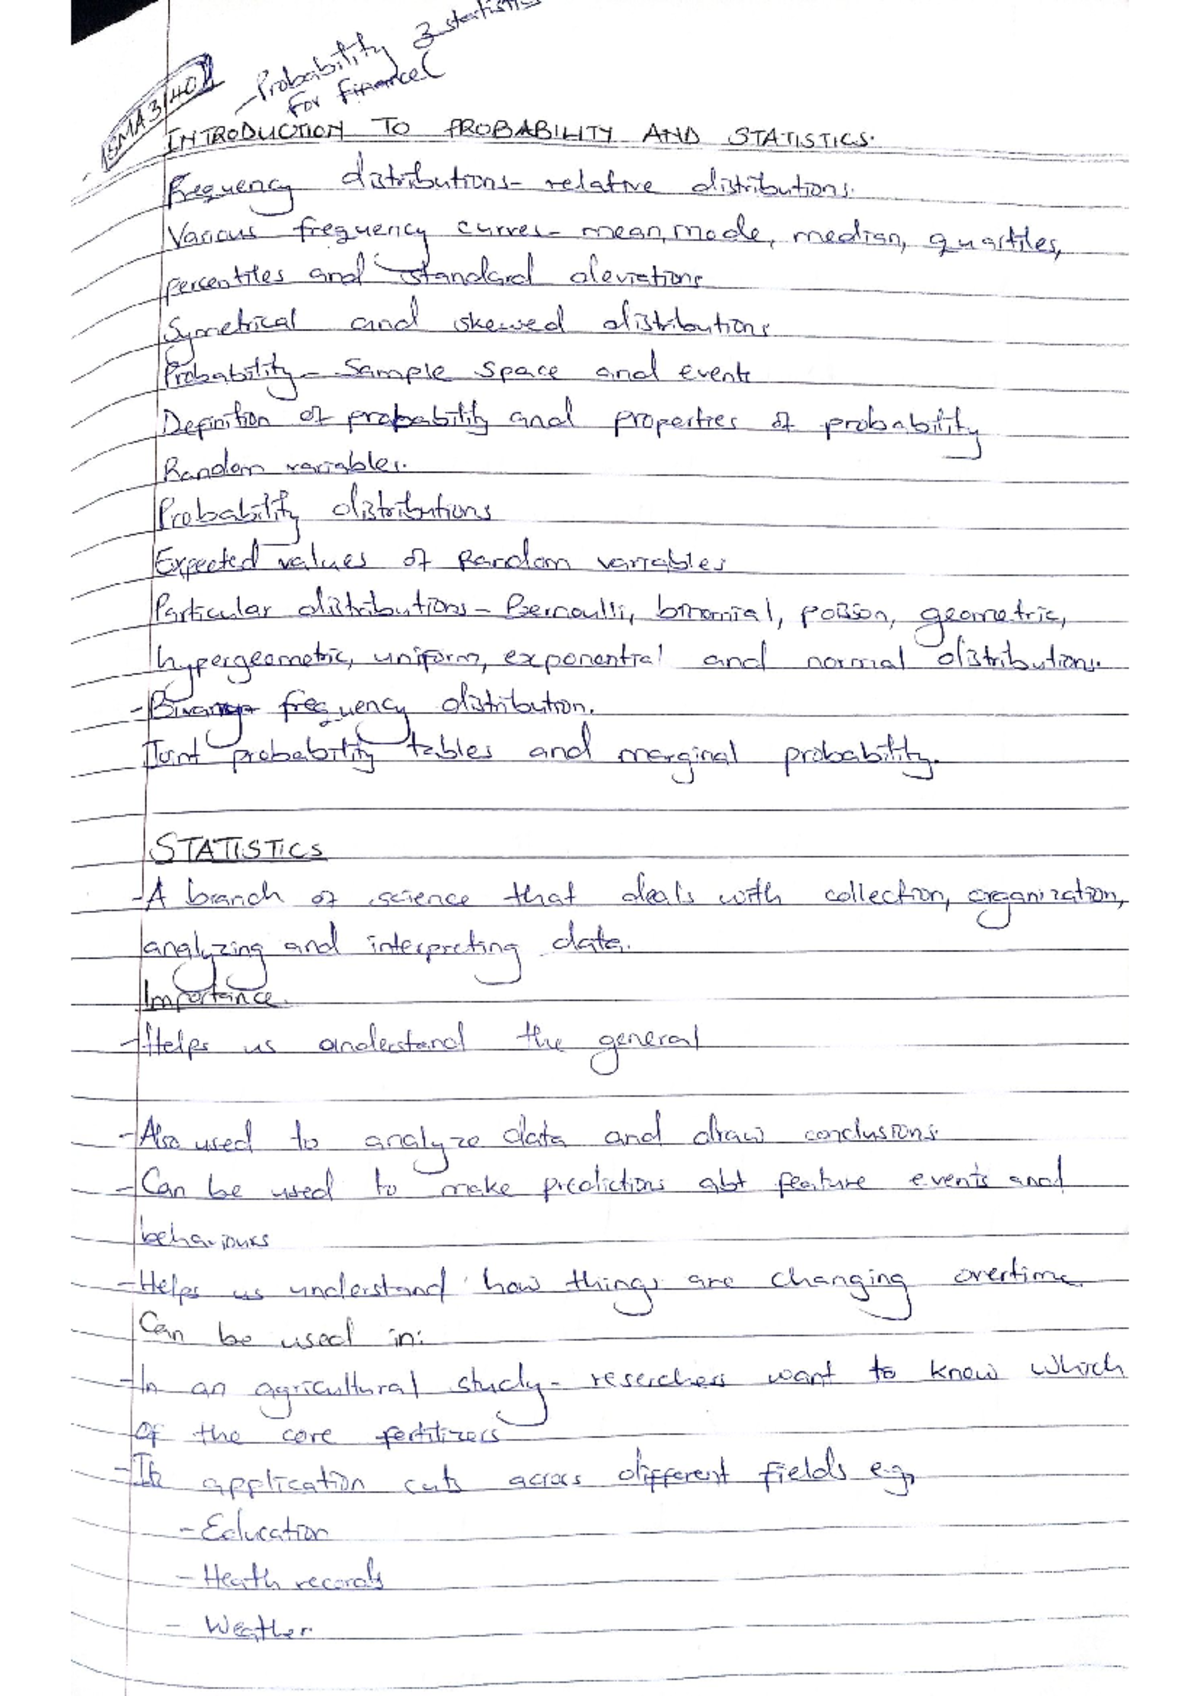 - Probability & statistics
For Finance(
INTRODUCTION TO PROBABILITY AND STATISTICS.
Frequency distributions - relative distributions.
Various frequency curves - mean, mode, median, quartiles,
percentiles and standard deviations
Symetrical and skewed distributions
Probability - Sample space and events
Definition of probability and properties of probability
Random variables.
Probability distributions
Expected values of Random variables
Particular distributions - Bernoulli, binomial, poisson, geometric,
hypergeometric, uniform, exponential and normal distributions.
- frequency distribution.
Joint probability tables and marginal probability.
STATISTICS
- A branch of science that deals with collection, organization,
analyzing and interpreting data.
Importance.
- Helps us understand the general
- Also used to analyze data and draw conclusions
- Can be used to make predictions abt feature events and
behaviours
- Helps us understand how things are changing overtime.
Can be used in:
- In an agricultural study - reserchers want to know which
Of the core fertilizers
- Its application cuts across different fields e.g,
- Education
- Heath records
- Weather